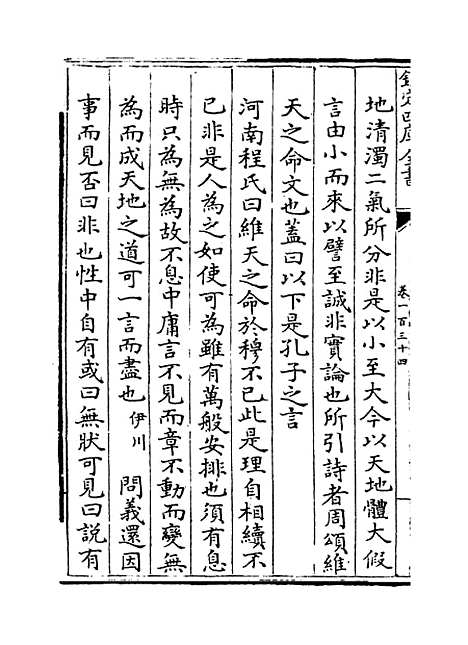 欽定四庫全書
卷一百三十四
地清濁二氣所分非是以小至大今以天地體大假
言由小而來以譬至誠非實論也所引詩者周頌維
天之命文也蓋曰以下是孔子之言
河南程氏曰維天之命於穆不已此是理自相續不
已非是人為之如使可為雖有萬般安排也須有息
時只為無為故不息中庸言不見而章不動而變無
為而成天地之道可一言而盡也伊川 問義還因
事而見否曰非也性中自有或曰無狀可見曰説有